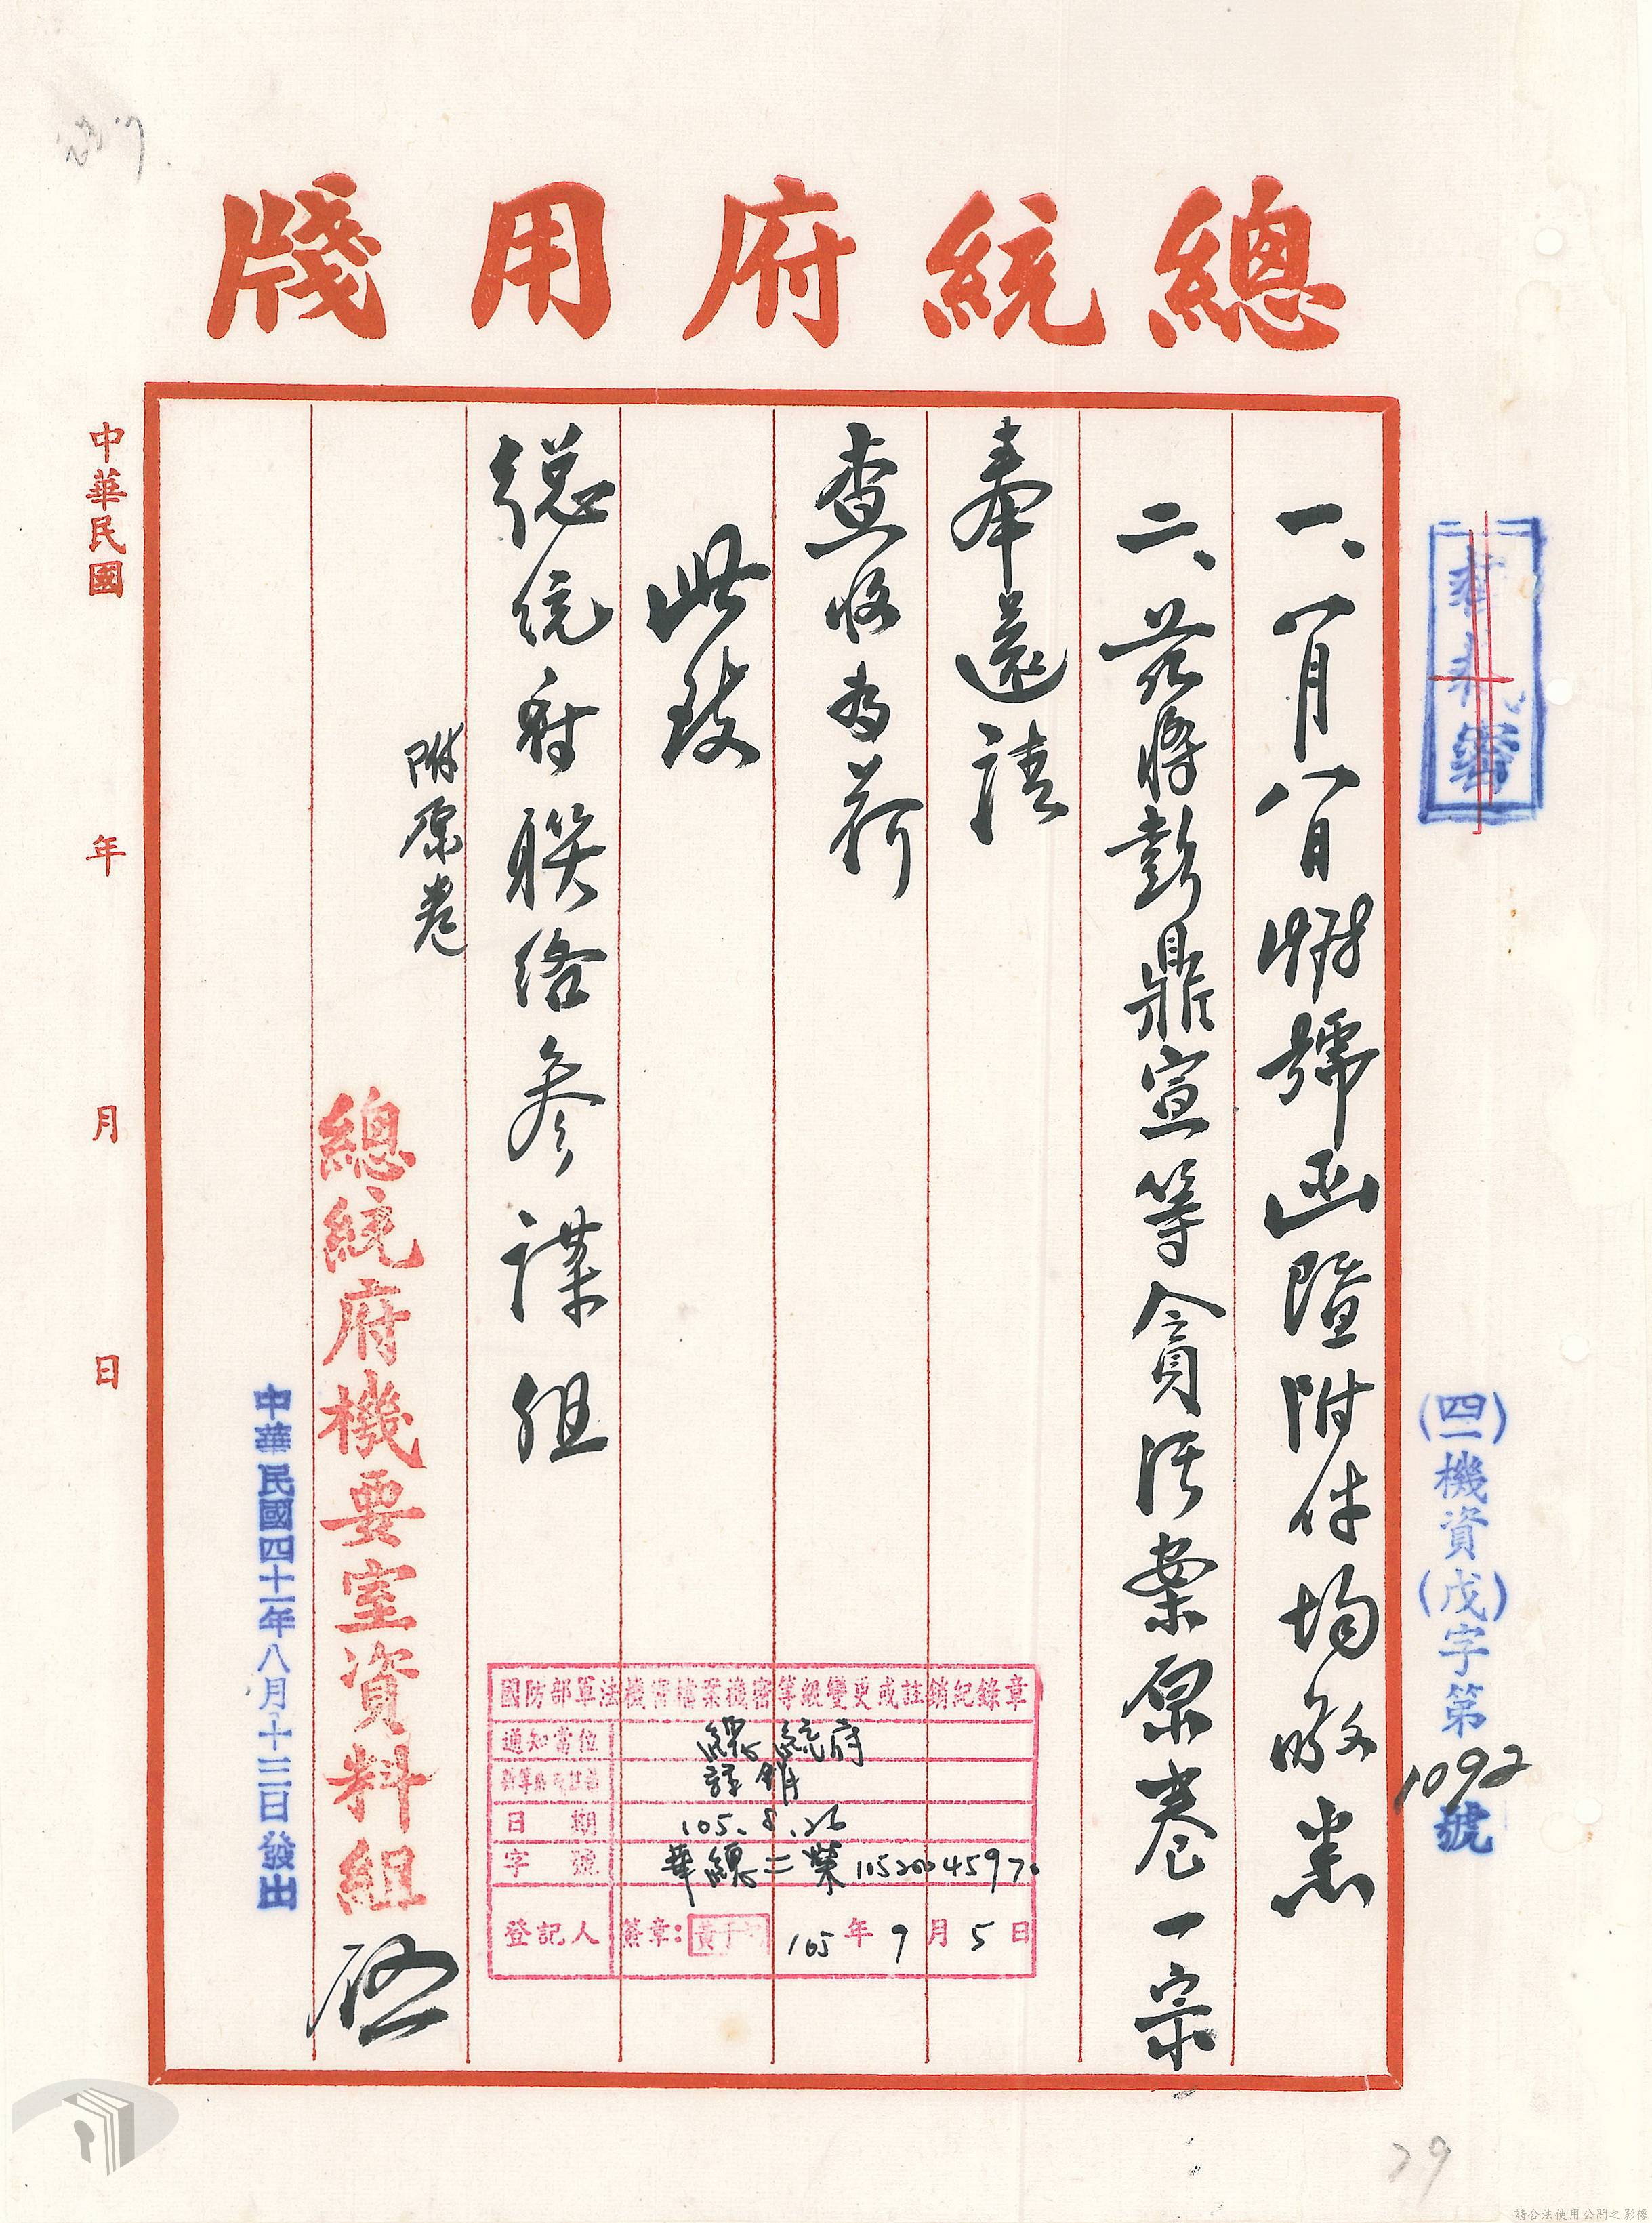 總統府用牋
機密
(四一)機資(戊)字第1092號
一、八月八日號函暨附件均敬悉
二、茲將彭鼎宣等貪污案原卷一宗
奉還請
查收為荷
此致
總統府聯絡參謀組
附原卷
總統府機要室資料組啓
中華民國四十一年八月十三日發出
中華民國 年 月 日
國防部軍法機關檔案機密等級變更或註銷紀錄章
通知單位 總統府
註銷
日期 105.8.26
字號 華總二榮10520045970
登記人 簽章: 105年9月5日
29
請合法使用公開之影像